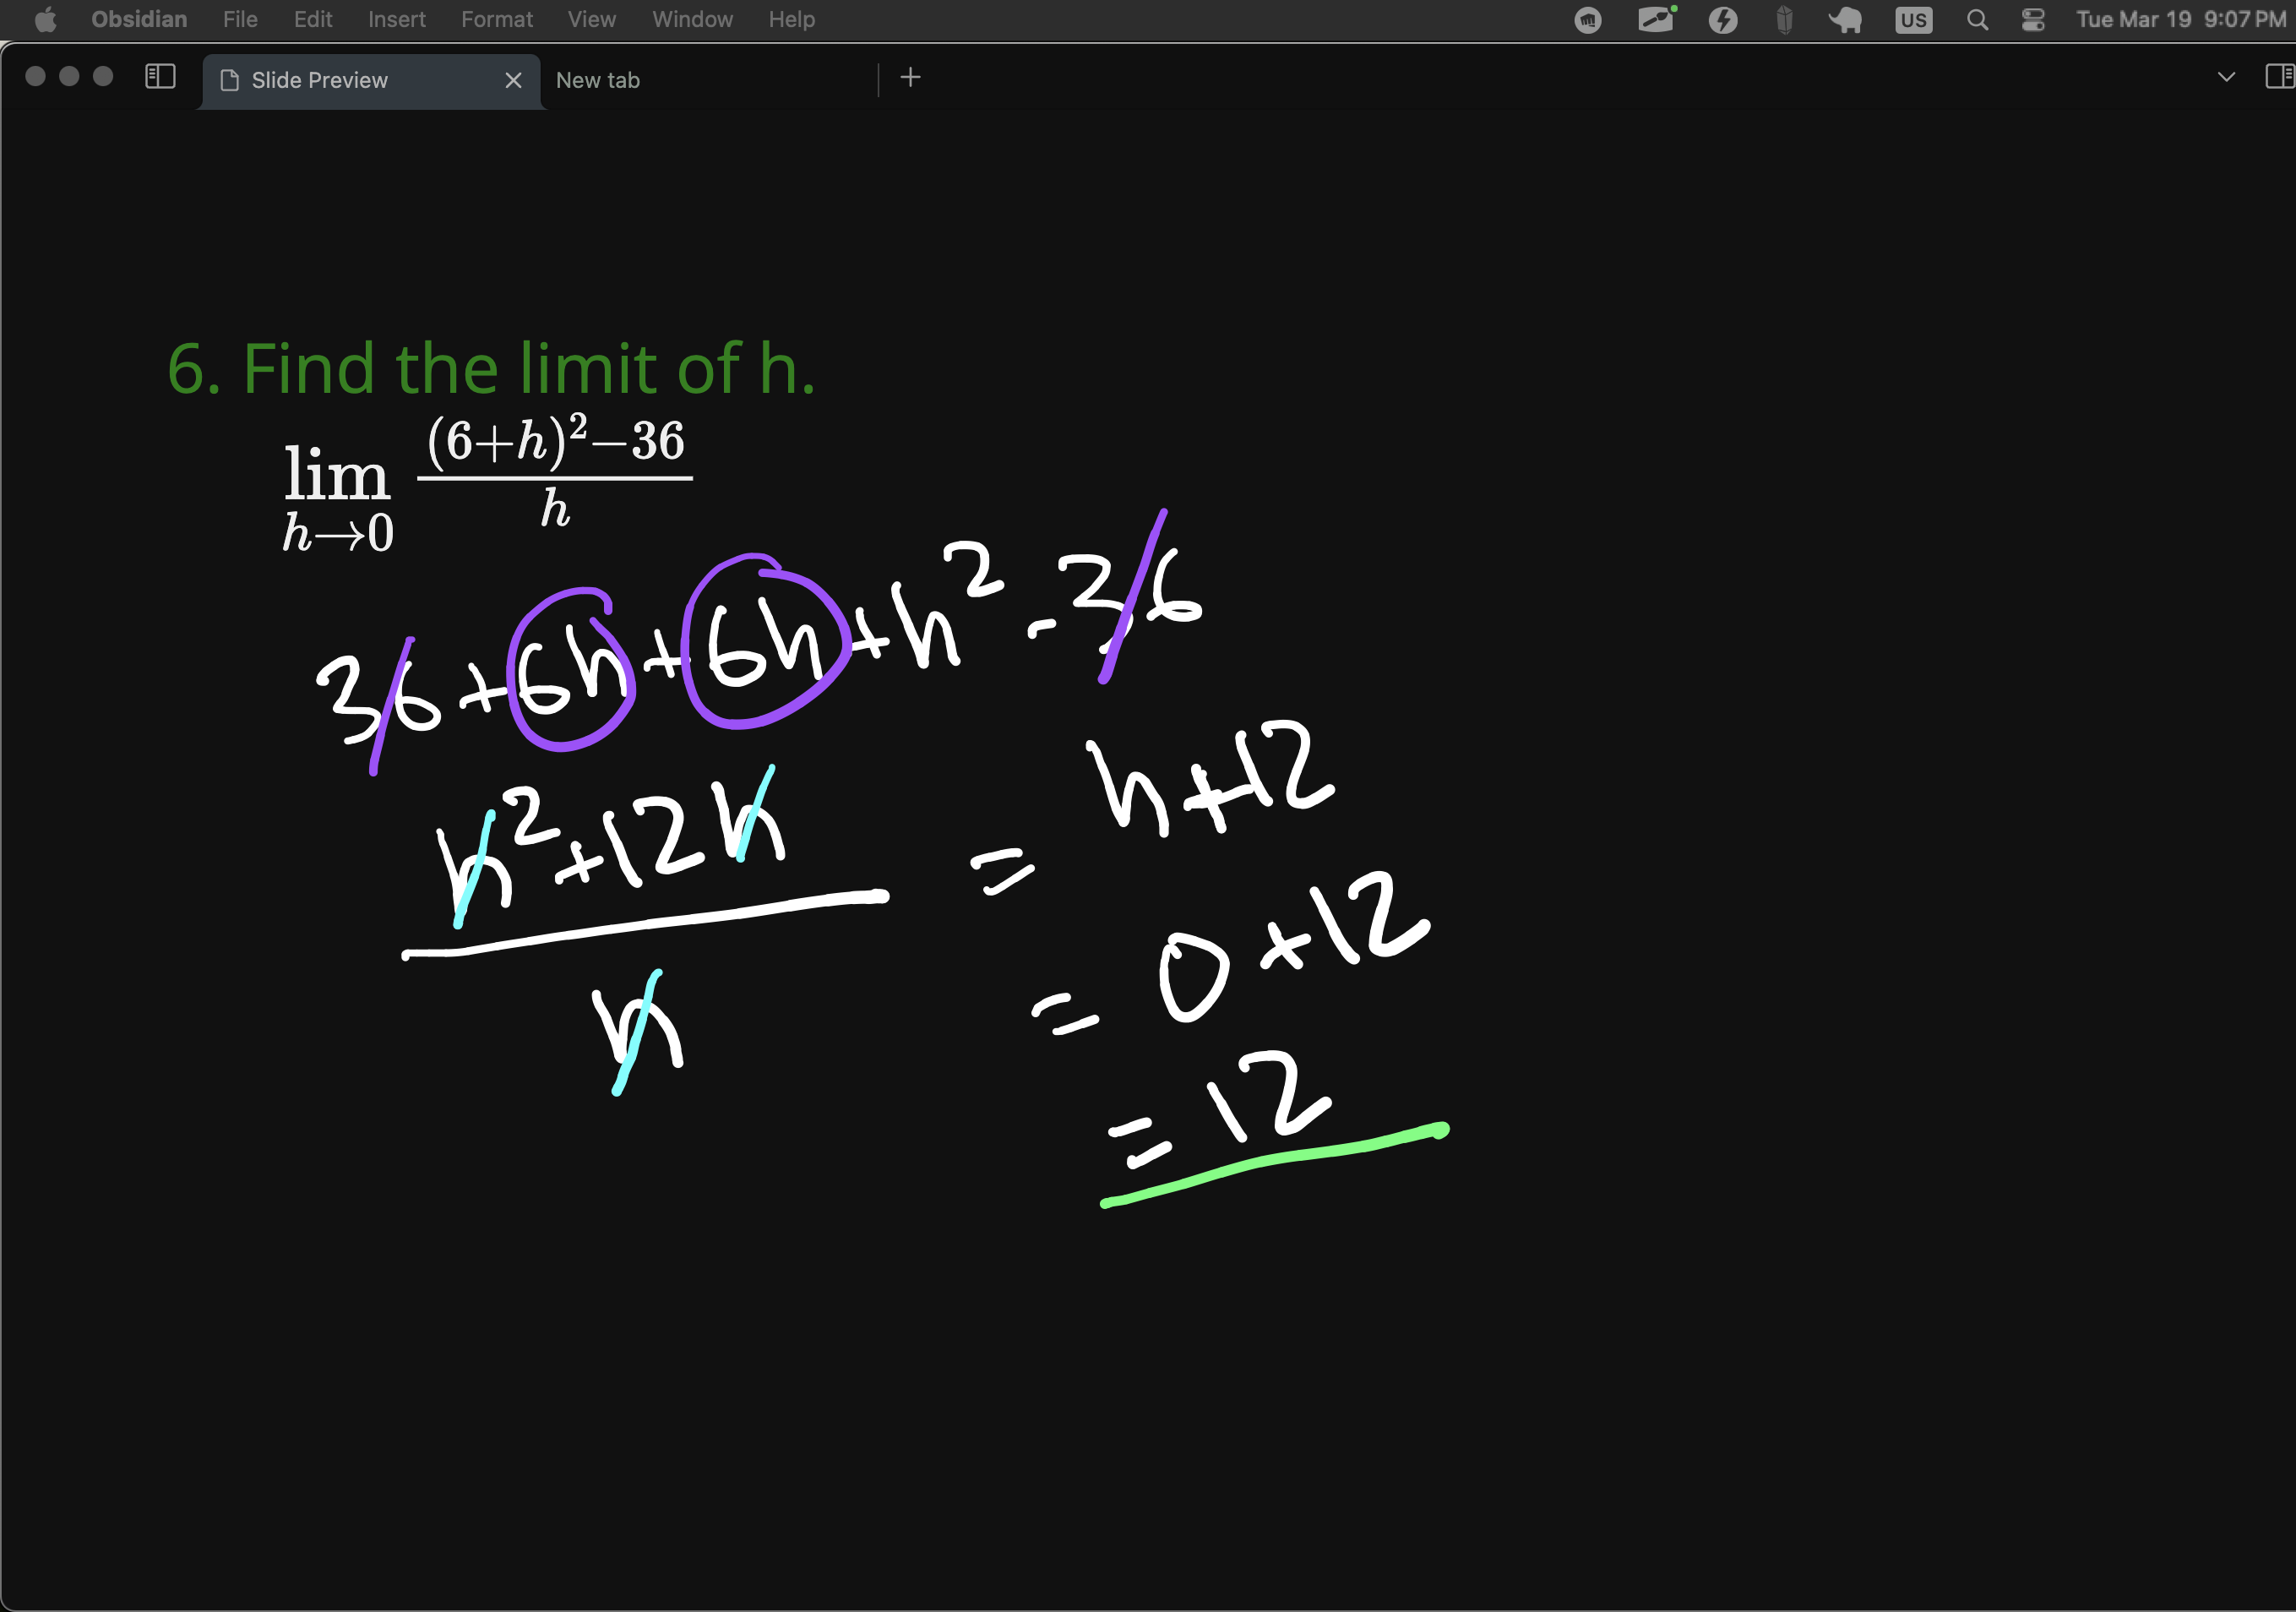 Obsidian File Edit Insert Format View Window Help US Tue Mar 19 9:07 PM
Slide Preview New tab
6. Find the limit of h.
lim h→0 ((6+h)²−36)/h
36+6h+6h+h²-36
(h²+12h)/h
= h+12
= 0+12
= 12